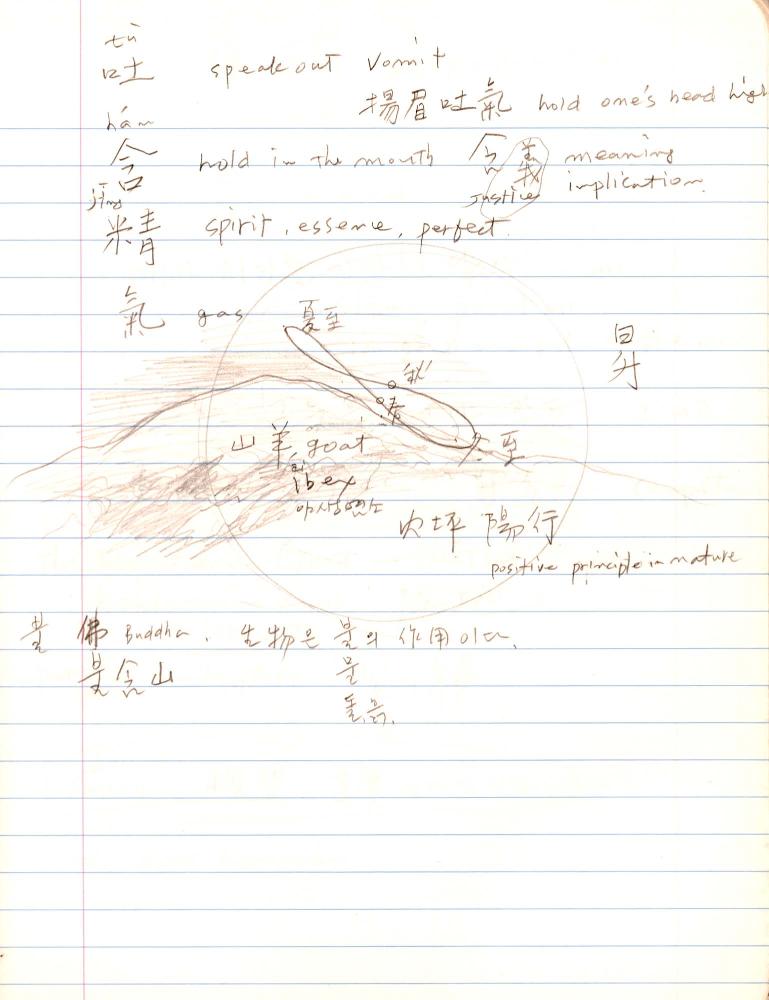 tǔ
吐 speak out vomit
揚眉吐氣 hold one's head high
hán
含 hold in the mouth 含義 meaning
justice implication.
jīng
精 spirit, essence, perfect.
氣 gas 夏至
昇
秋
春
山羊 goat 冬至
ibex
야생염소
坪 陽行
positive principle in nature
불 佛 Buddha. 生物은 불의 作用이다.
불含山 물
돌, 흙.